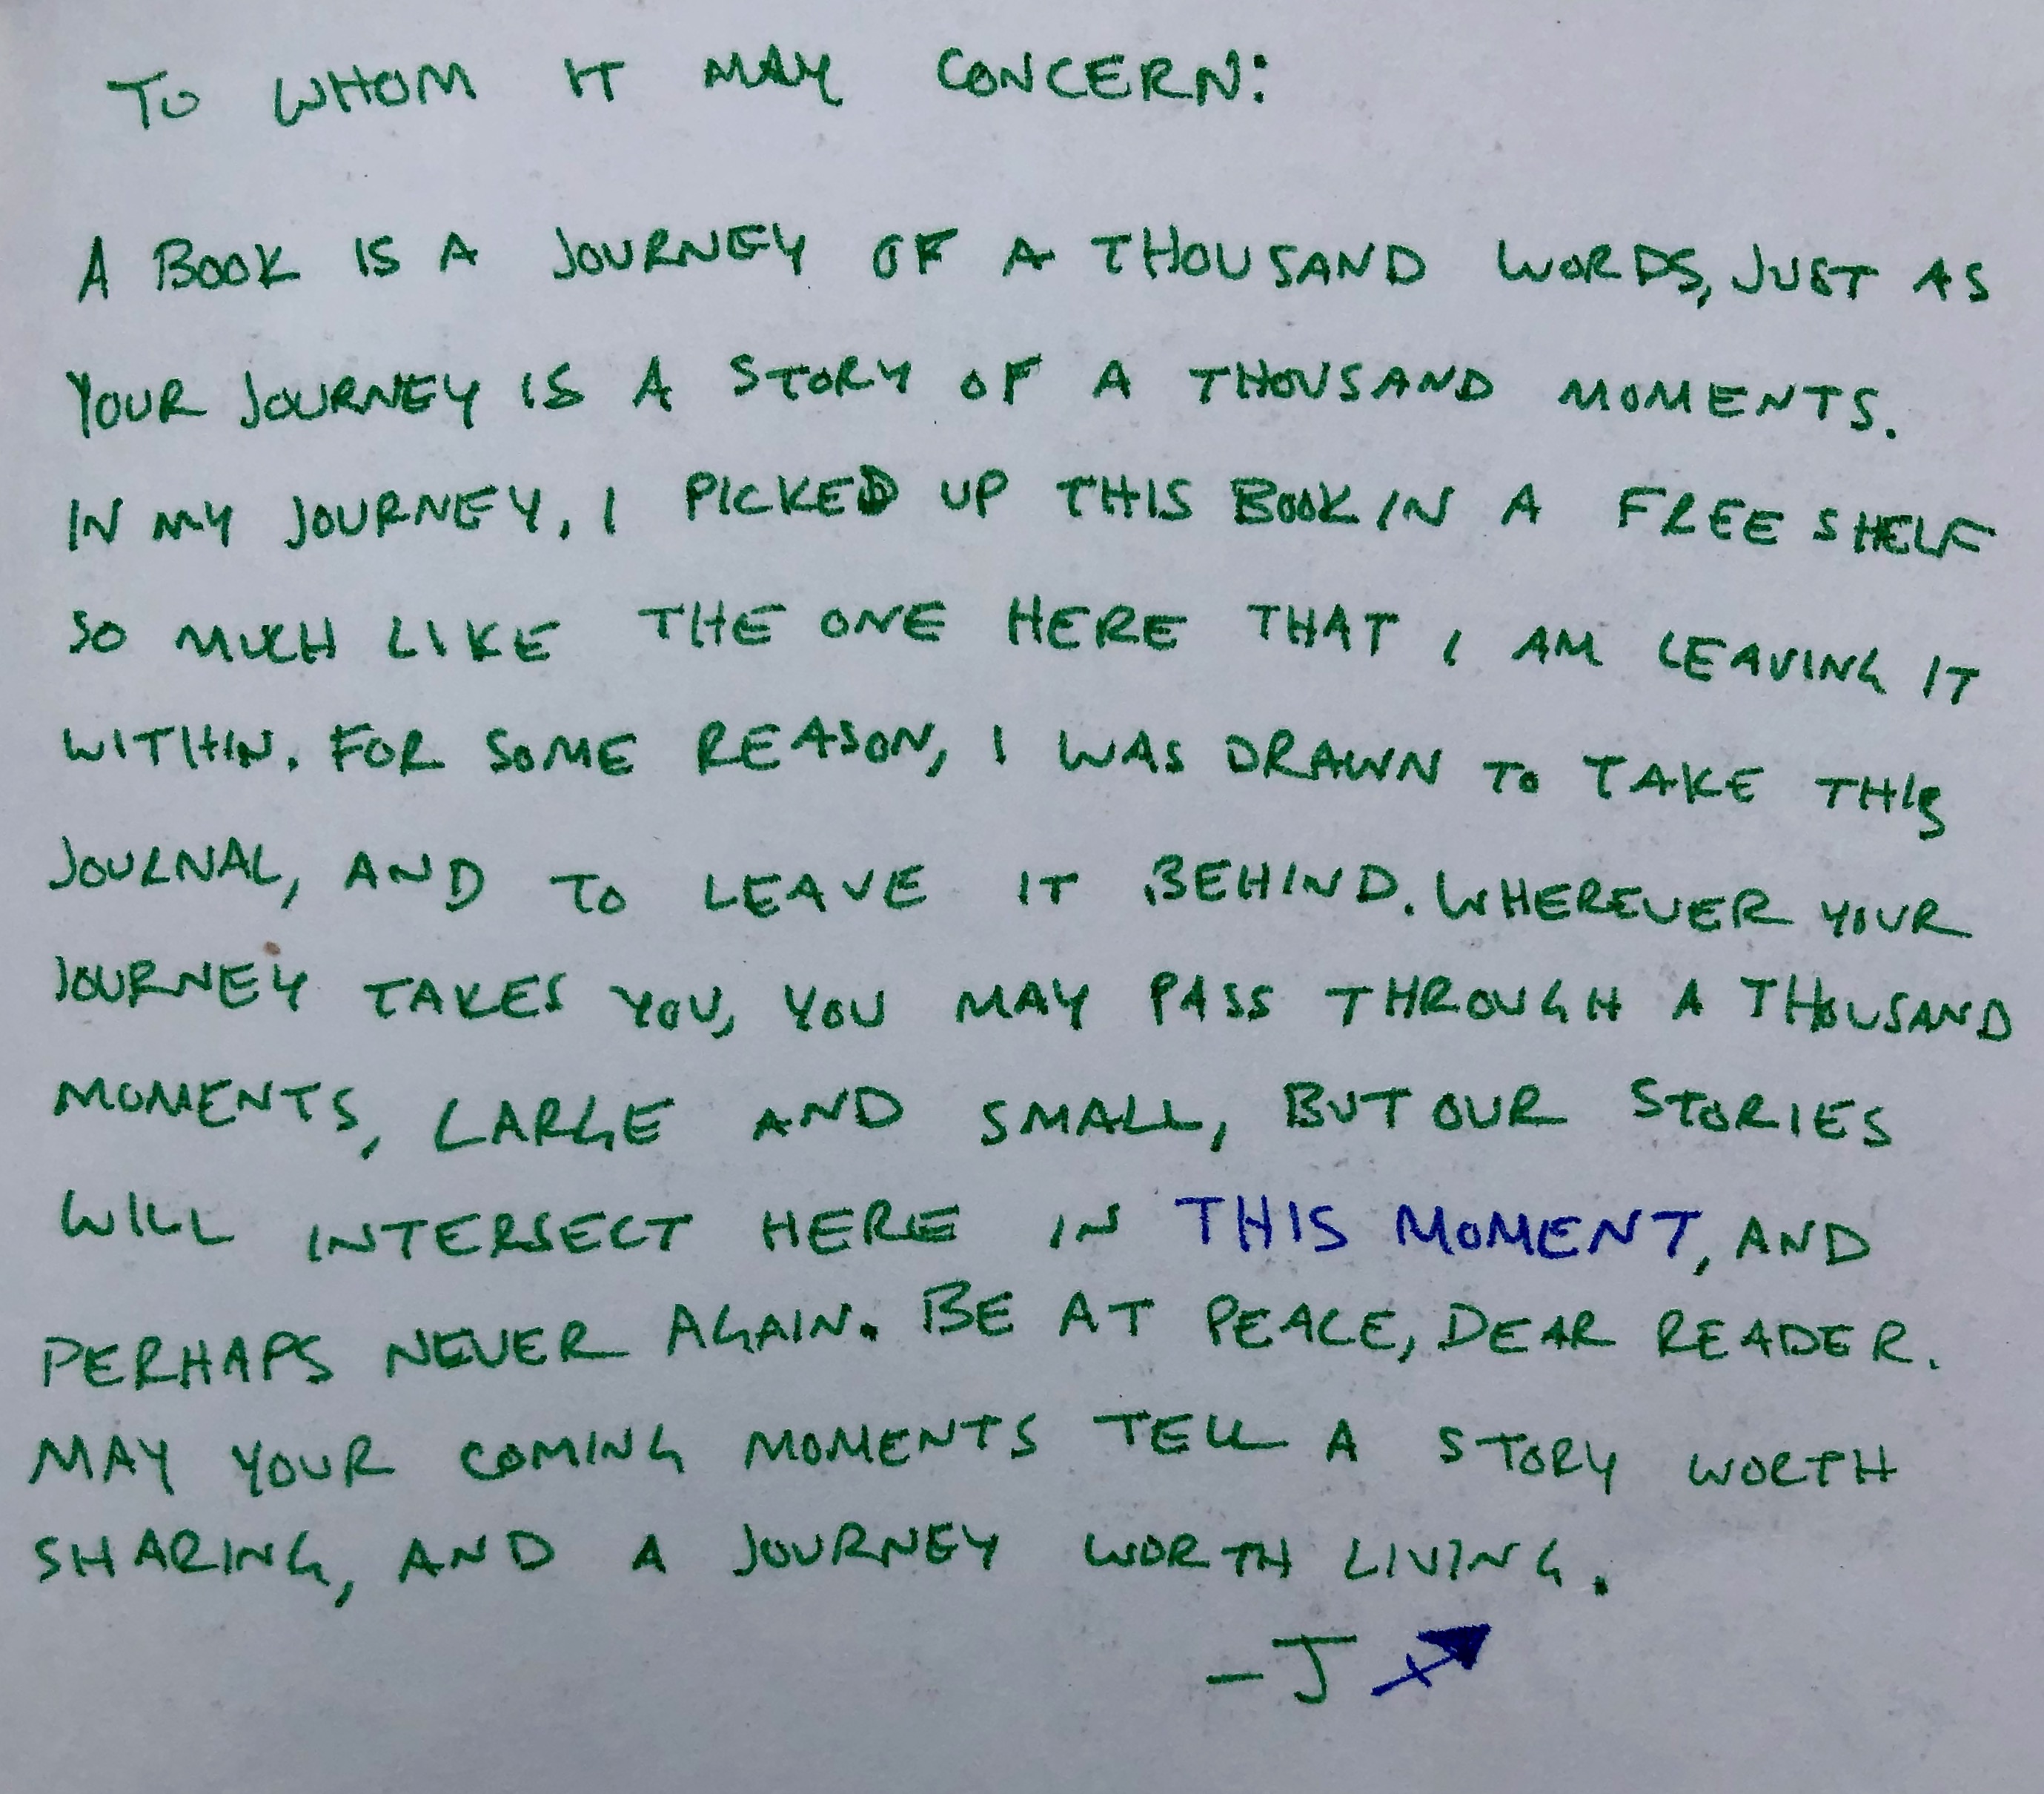 TO WHOM IT MAY CONCERN:
A BOOK IS A JOURNEY OF A THOUSAND WORDS, JUST AS
YOUR JOURNEY IS A STORY OF A THOUSAND MOMENTS.
IN MY JOURNEY, I PICKED UP THIS BOOK IN A FREE SHELF
SO MUCH LIKE THE ONE HERE THAT I AM LEAVING IT
WITHIN. FOR SOME REASON, I WAS DRAWN TO TAKE THIS
JOURNAL, AND TO LEAVE IT BEHIND. WHEREVER YOUR
JOURNEY TAKES YOU, YOU MAY PASS THROUGH A THOUSAND
MOMENTS, LARGE AND SMALL, BUT OUR STORIES
WILL INTERSECT HERE IN THIS MOMENT, AND
PERHAPS NEVER AGAIN. BE AT PEACE, DEAR READER.
MAY YOUR COMING MOMENTS TELL A STORY WORTH
SHARING, AND A JOURNEY WORTH LIVING.
-J